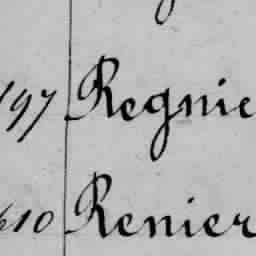 197 Regnie
610 Renier